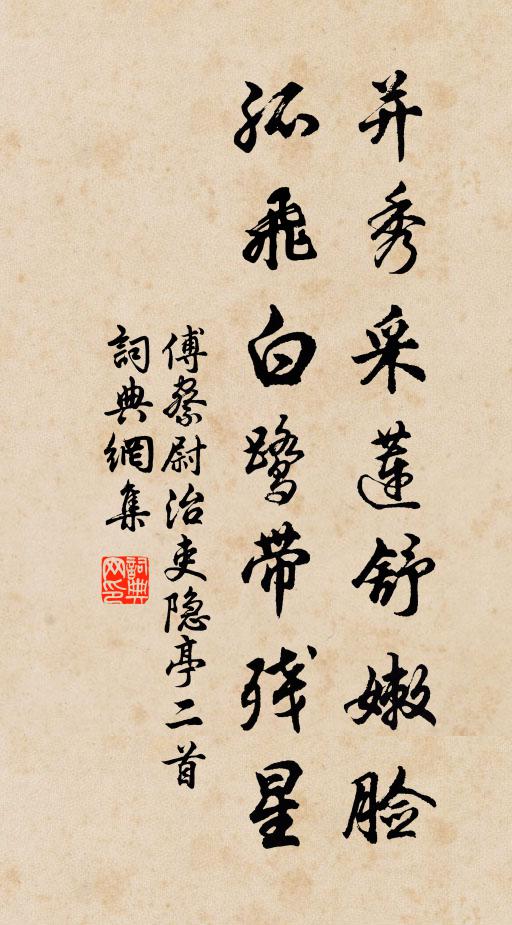 并秀采莲舒嫩脸
孤飞白鹭带残星
傅察尉治吏隐亭二首
詞典網集
詞典网印